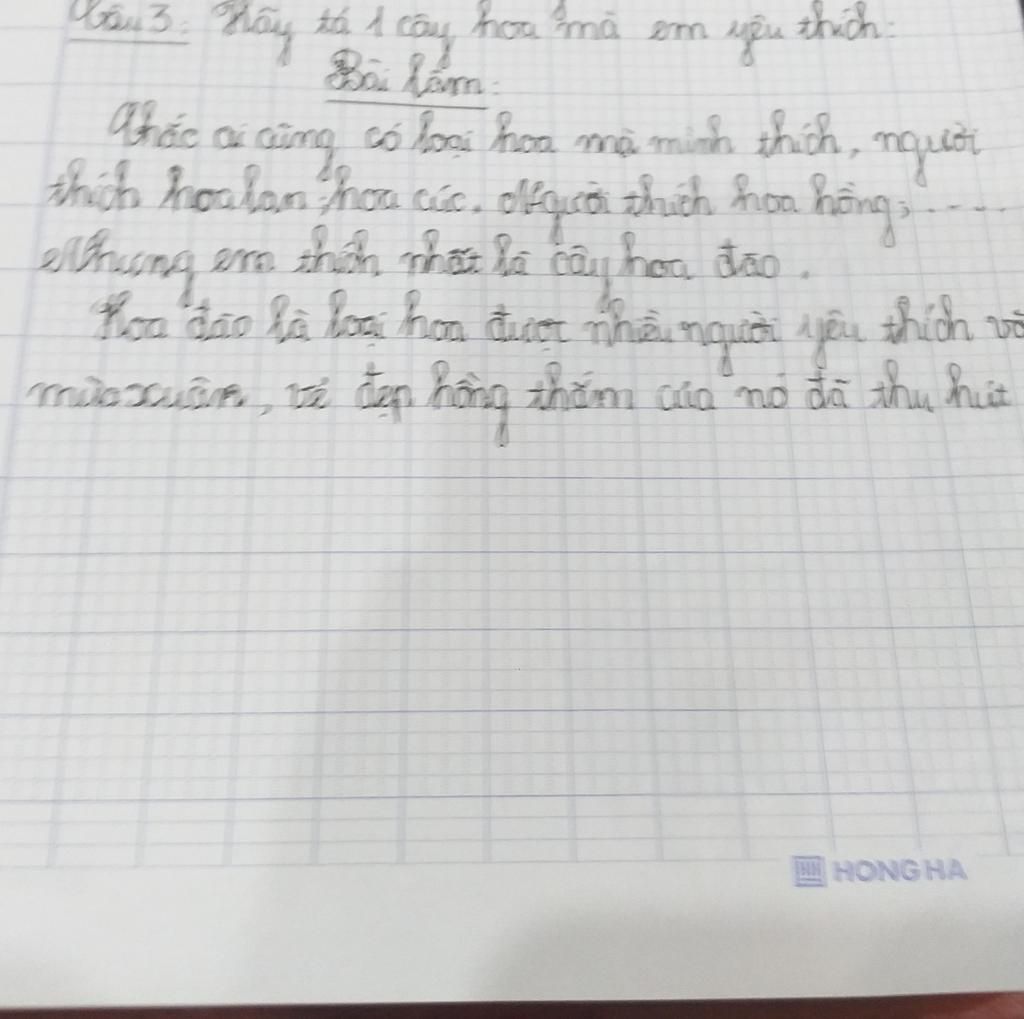 Câu 3: Hãy tả 1 cây hoa mà em yêu thích:
Bài làm:
Chắc ai cũng có loại hoa mà mình thích, người
thích hoa lan, hoa cúc. Người thích hoa hồng, ....
Nhưng em thích nhất là cây hoa đào.
Hoa đào là loại hoa được nhiều người yêu thích về
mùa xuân, vẻ đẹp hồng thắm của nó đã thu hút
HONG HA